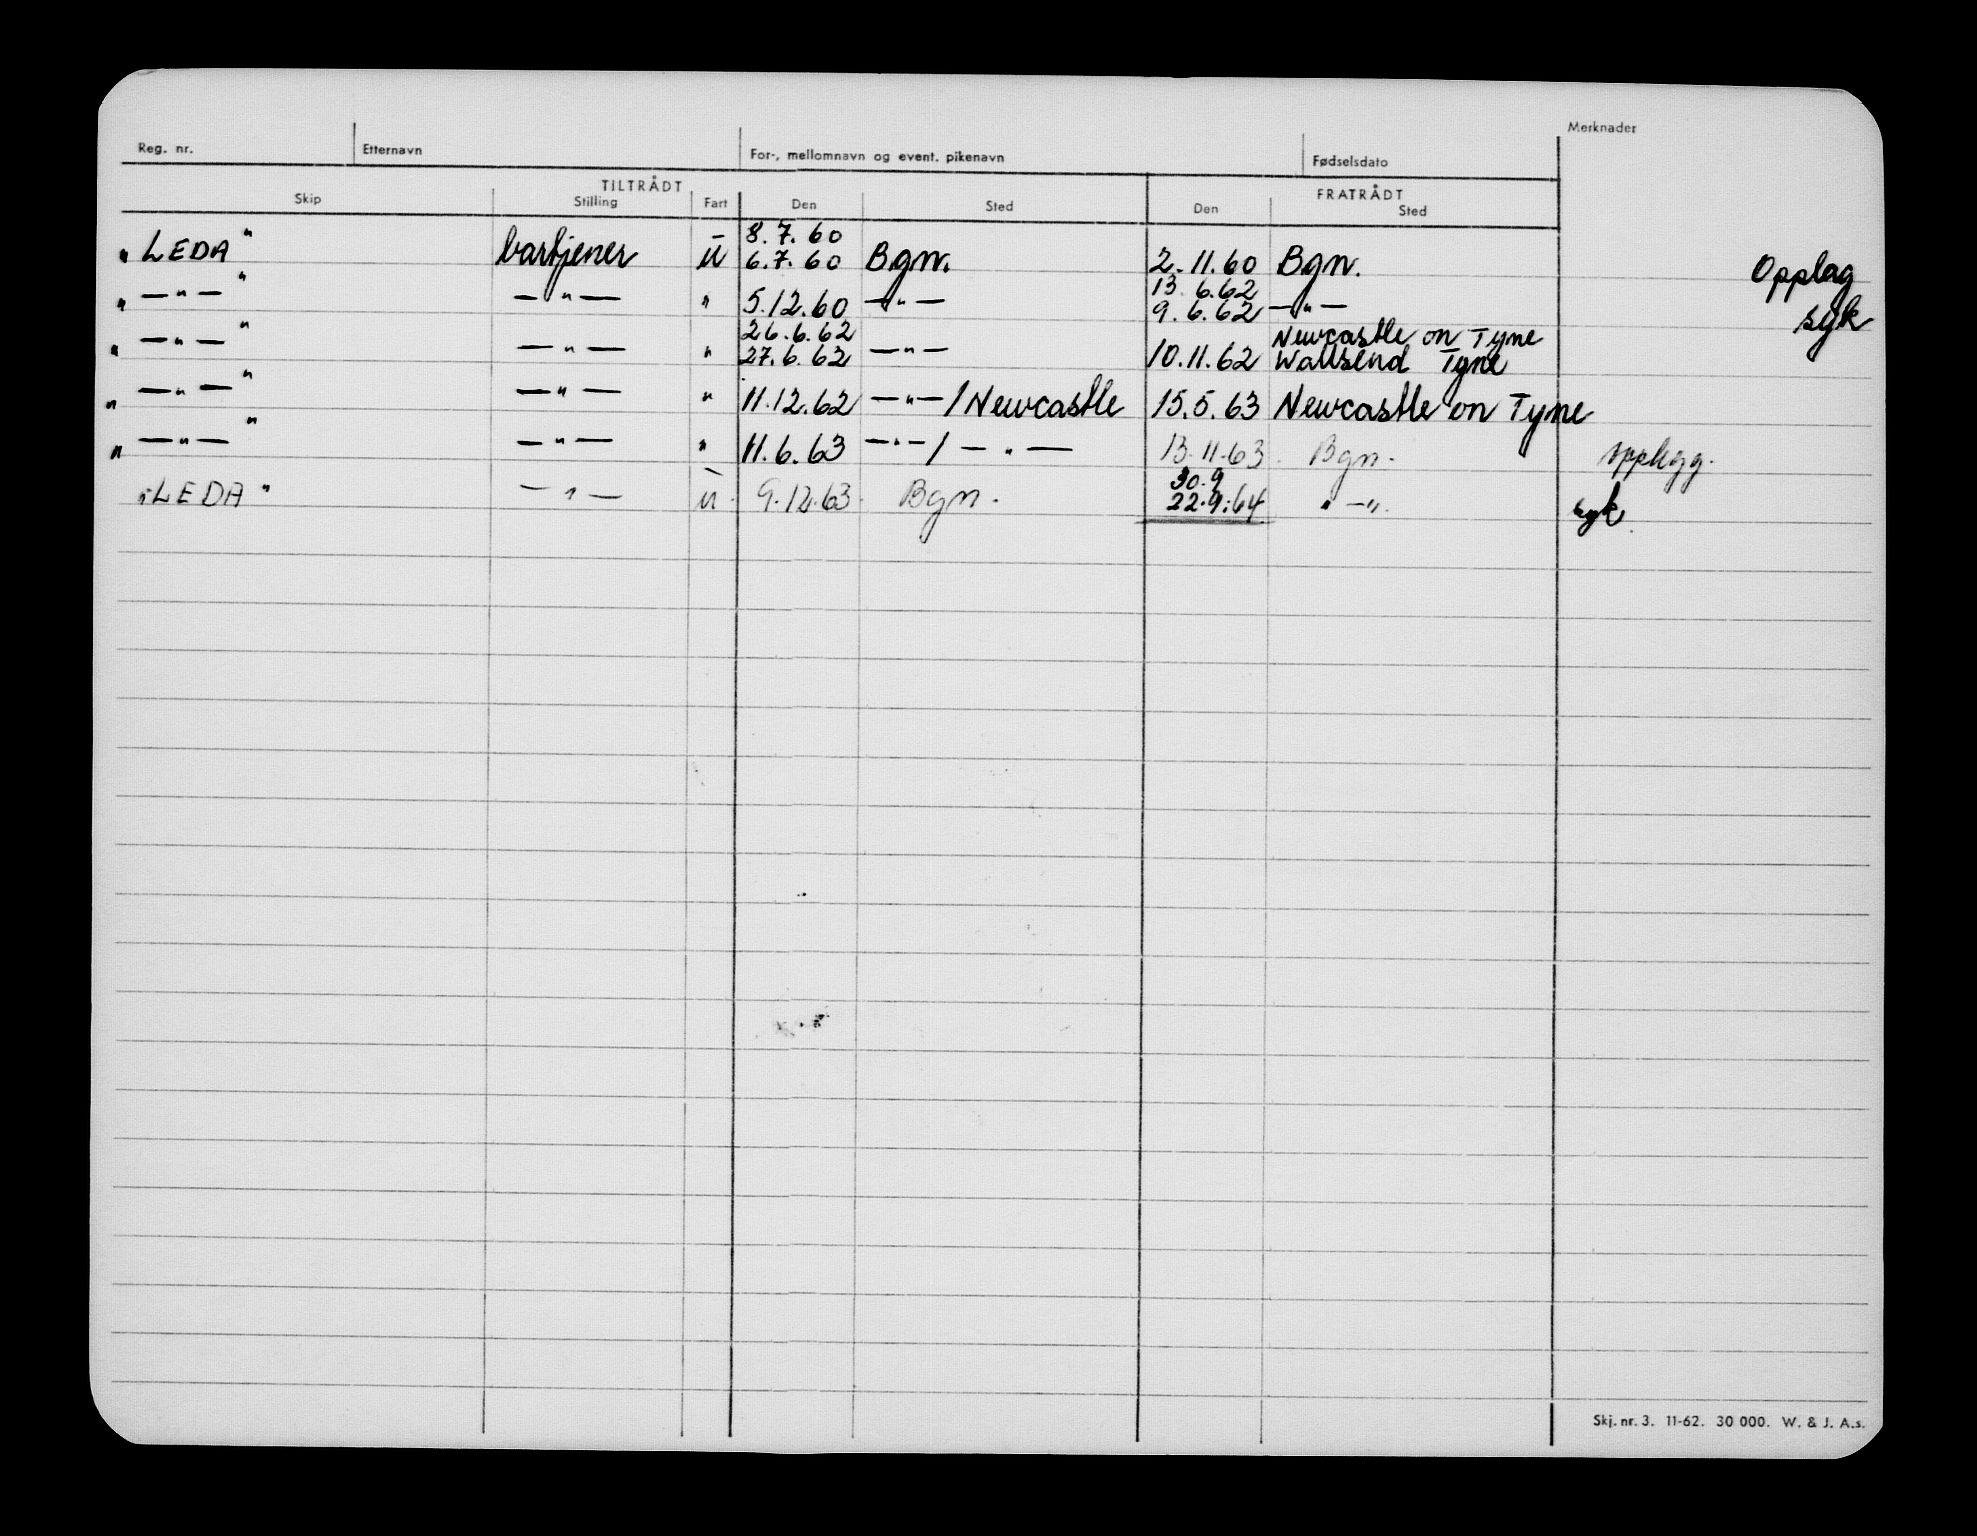 Reg. nr. Etternavn For-, mellomnavn og event. pikenavn Fødselsdato Merknader
TILTRÅDT FRATRÅDT
Skip Stilling Fart Den Sted Den Sted
8.7.60
"LEDA" bartjener u 6.7.60 Bgn. 2.11.60 Bgn. Opplag
13.6.62
" —"— " —"— " 5.12.60 —"— 9.6.62 —"— syk
26.6.62 Newcastle on Tyne
" —"— " —"— " 27.6.62 —"— 10.11.62 Wallsend Tyne
" —"— " —"— " 11.12.62 —"—/Newcastle 15.5.63 Newcastle on Tyne
" —"— " —"— " 11.6.63 —"—/—"— 13.11.63. Bgn. opplegg.
30.9
"LEDA" —"— u. 9.12.63. Bgn. 22.9.64 "—". syk.
Skj. nr. 3. 11-62. 30 000. W. & J. A.s.